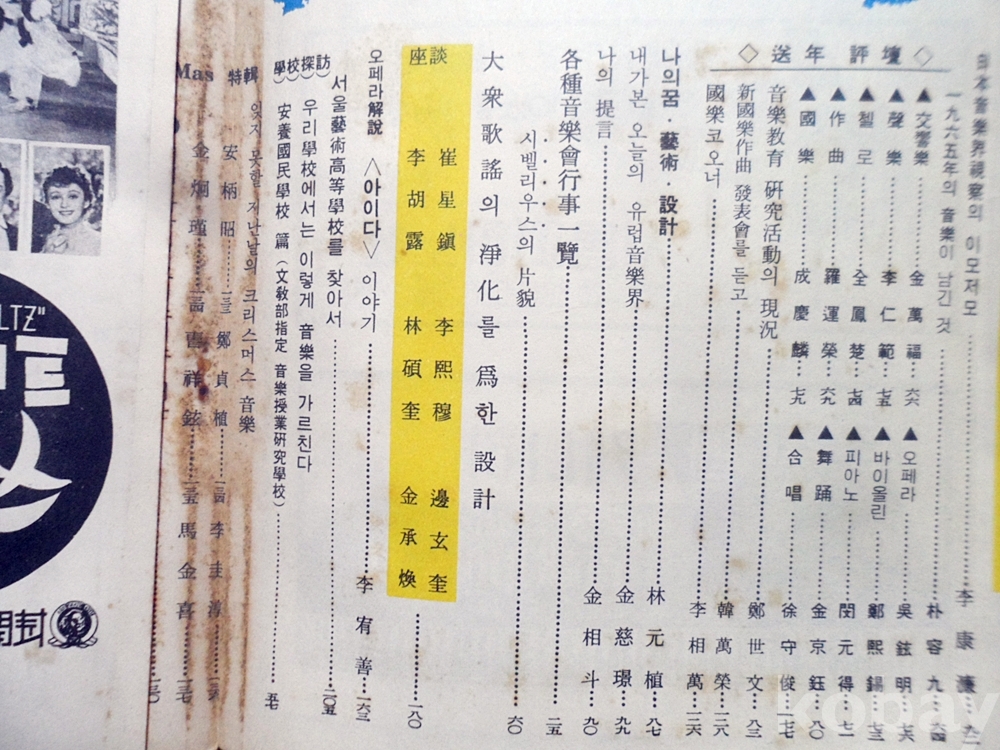 日本音樂界視察의 이모저모 李康濂
一九六五年의 音樂이 남긴 것 朴容九
◇ 送年 評壇 ◇
▲交響樂 金萬福 六六 ▲오페라 吳鉉明
▲聲樂 李仁範 ▲바이올린 鄭熙錫
▲첼로 全鳳楚 ▲피아노 閔元得
▲作曲 羅運榮 ▲舞踊 金京鈺 八〇
▲國樂 成慶麟 ▲合唱 徐守俊
音樂教育 硏究活動의 現況 鄭世文 八三
新國樂作曲 發表會를 듣고 韓萬榮
國樂코오너 李相萬
나의꿈・藝術・設計 林元植 八七
내가본 오늘의 유럽音樂界 金慈璟 八九
나의 提言 金相斗 九〇
各種音樂會行事一覽 二五
시벨리우스의 片貌 六〇
大衆歌謠의 淨化를 爲한 設計
座談 崔星鎭 李熙穆 邊玄奎
李胡露 林碩奎 金承煥 一八〇
오페라解說 <아이다> 이야기 李宥善 一六三
서울藝術高等學校를 찾아서 二〇五
學校探訪 우리學校에서는 이렇게 音樂을 가르친다
安養國民學校 篇 (文敎部指定 音樂授業硏究學校) 五七
Mas 特輯 잊지 못할 지난날의 크리스머스 音樂
安柄昭 鄭貞植 李圭
金炯瑾 吉祥鉉 馬金喜
LTZ"
開封
kobay